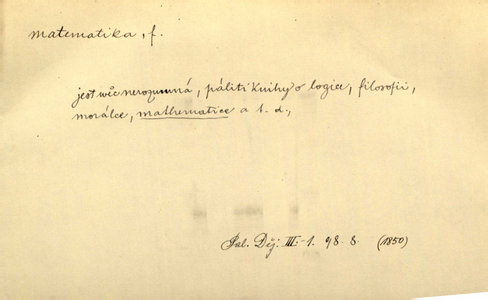 matematika, f.
jest wěc nerozumná, páliti knihy o logice, filosofii,
morálce, mathematice a t. d.,
Pal. Děj. III.-1. 98. 8. (1850)